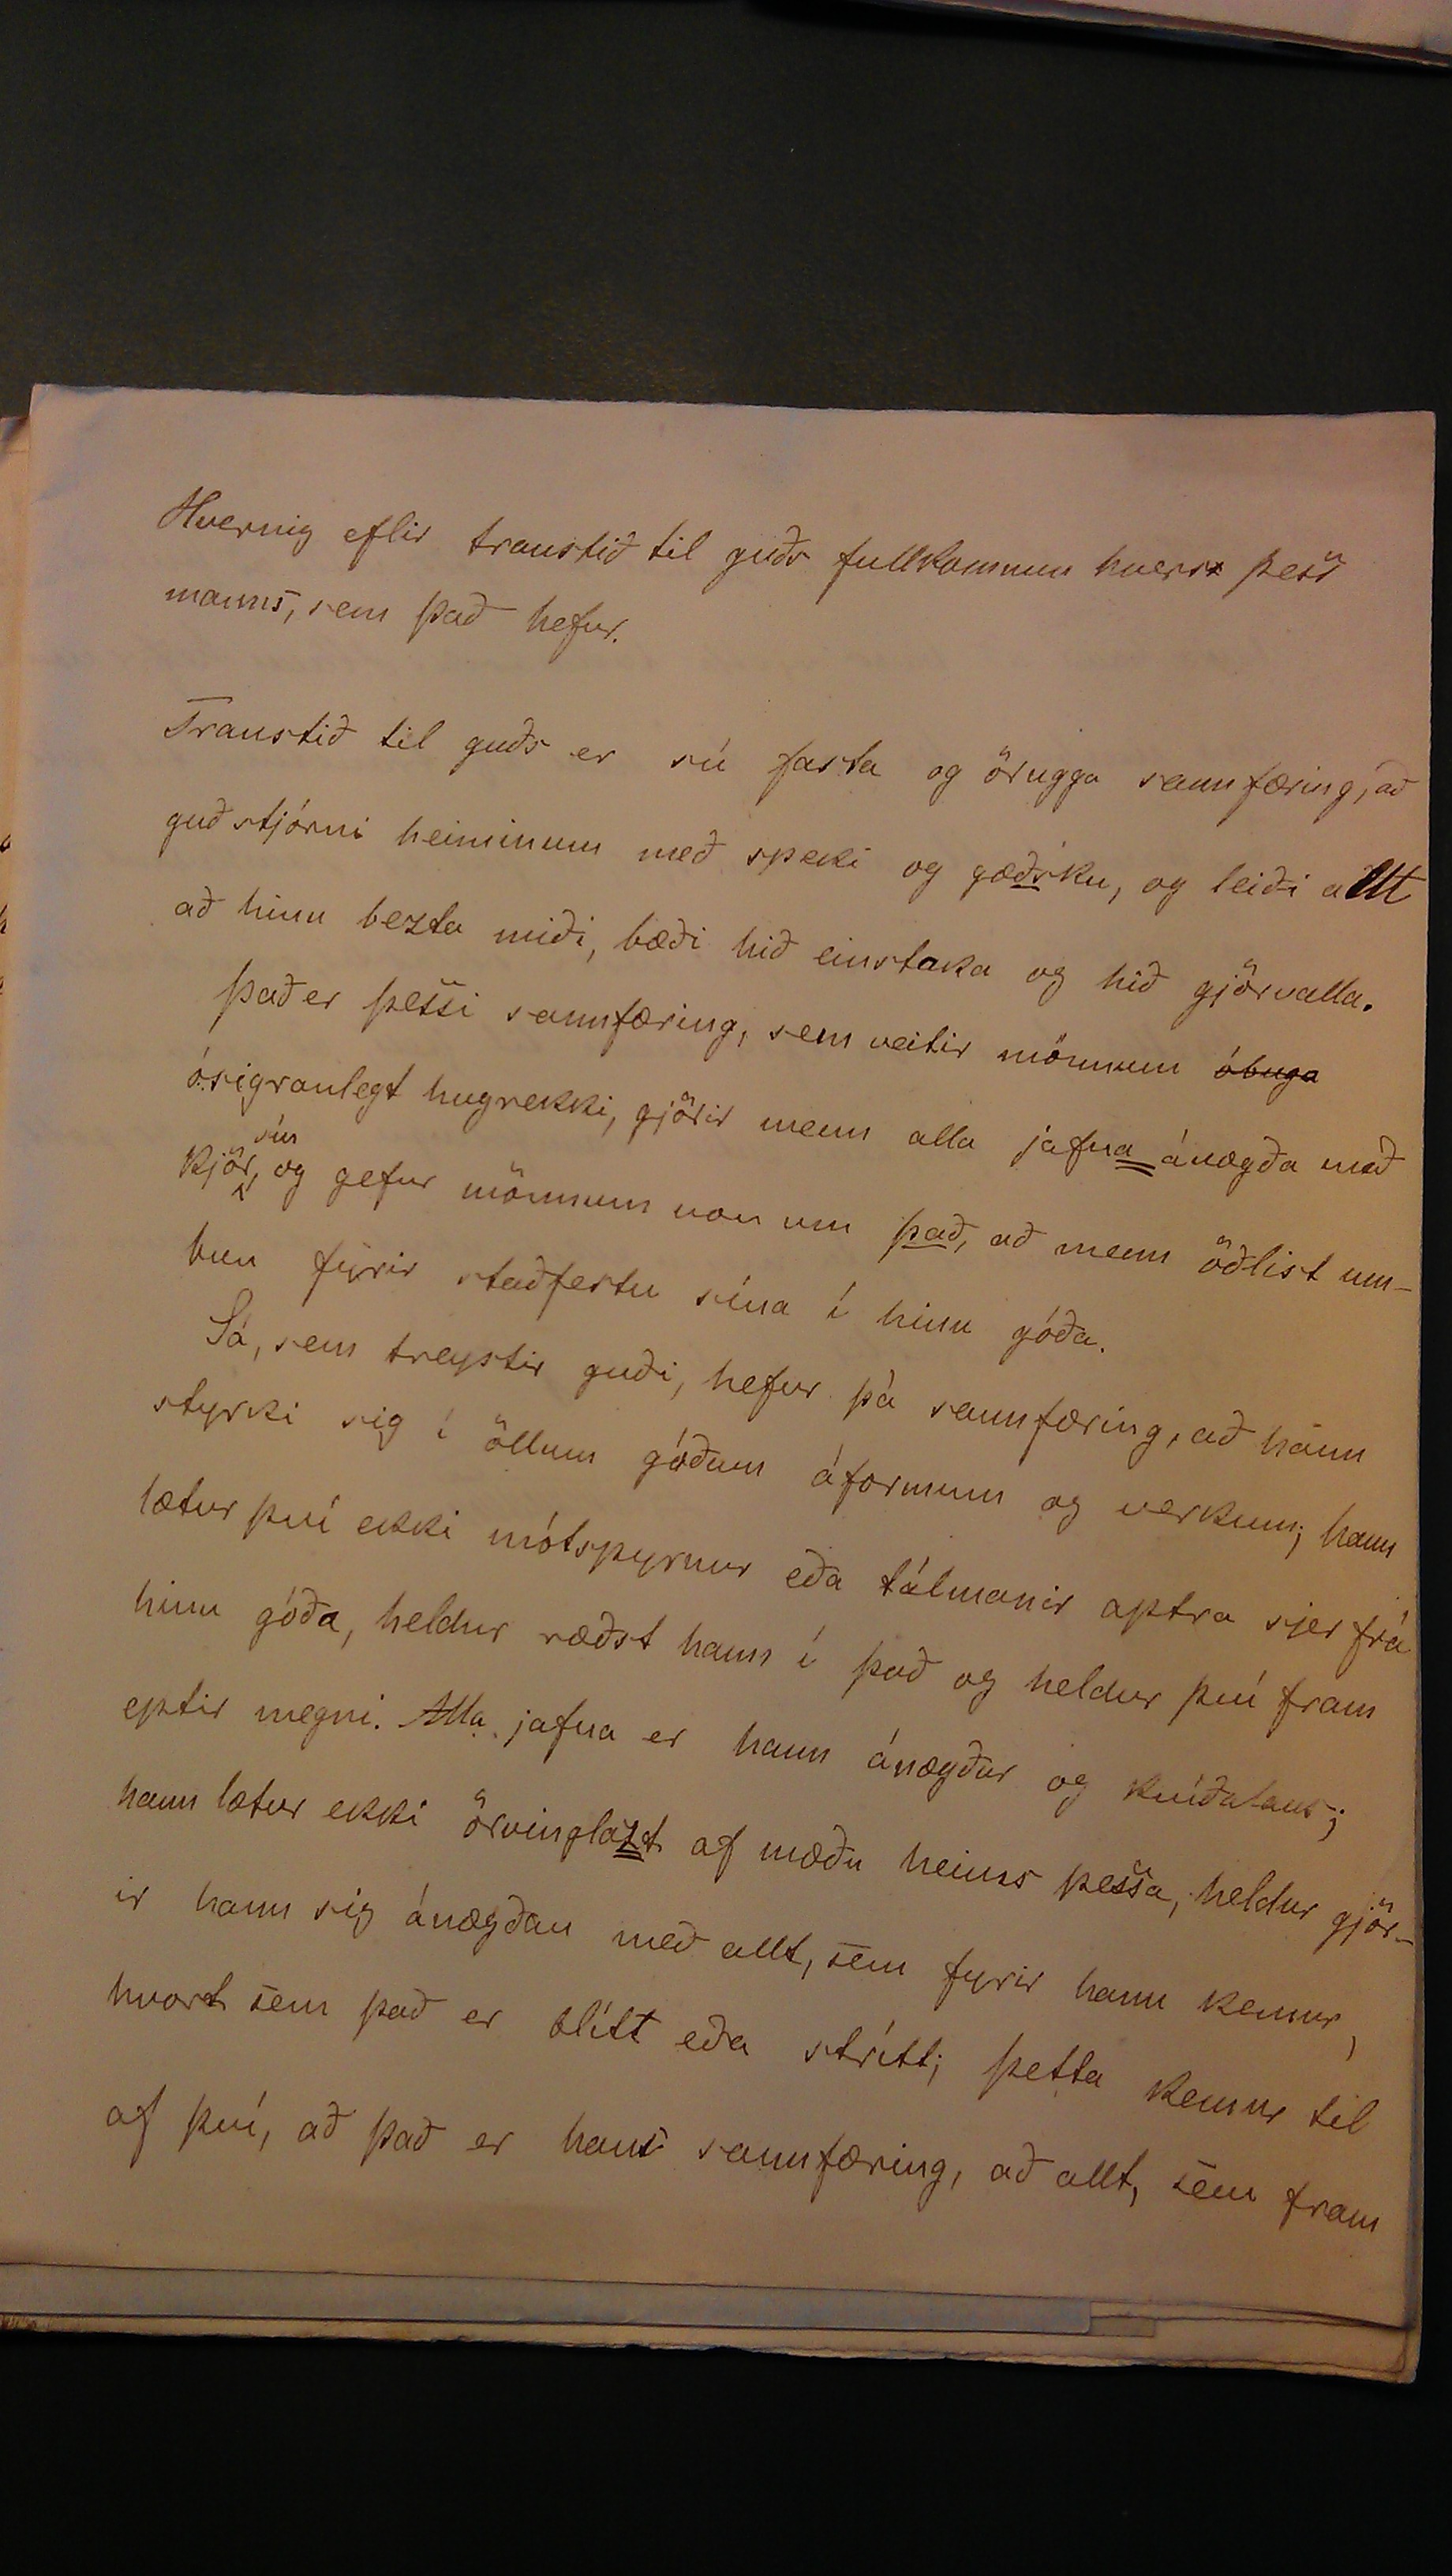 Hvernig eflir traustið til guðs fullkomnun hvers þess
manns, sem það hefur.
Traustið til guðs er sú fasta og örugga sannfæring, að
guð stjórni heiminum með speki og gæðsku, og leiði allt
að hinu bezta miði, bæði hið einstaka og hið gjörvalla.
Það er þessi sannfæring, sem veitir mönnum óbuga
ósigranlegt hugrekki, gjörir menn alla jafna ánægða með
kjör sín, og gefur mönnum von um það, að menn öðlist um-
bun fyrir staðfestu sína í hinu góða.
Sá, sem treystir guði, hefur þá sannfæring, að hann
styrki sig í öllum góðum áformum og verkum; hann
lætur því ekki mótspyrnur eða tálmanir aptra sjer frá
hinu góða, heldur ræðst hann í það og heldur því fram
eptir megni. Alla jafna er hann ánægður og kvíðalaus;
hann lætur ekki örvinglazt af mæðu heims þessa, heldur gjör-
ir hann sig ánægðan með allt, sem fyrir hann kemur,
hvort sem það er blítt eða strítt; þetta kemur til
af því, að það er hans sannfæring, að allt, sem fram